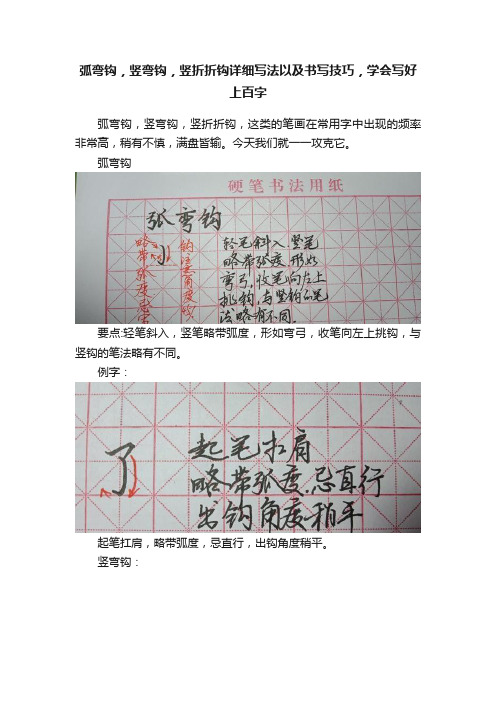 弧弯钩，竖弯钩，竖折折钩详细写法以及书写技巧，学会写好
上百字
弧弯钩，竖弯钩，竖折折钩，这类的笔画在常用字中出现的频率
非常高，稍有不慎，满盘皆输。今天我们就一一攻克它。
弧弯钩
硬笔书法用纸
弧弯钩
略带弧度忌实
钩注意角度
轻笔斜入竖笔
略带弧度,形如
弯弓,收笔向左上
挑钩,与竖钩的笔
法略有不同.
要点:轻笔斜入，竖笔略带弧度，形如弯弓，收笔向左上挑钩，与
竖钩的笔法略有不同。
例字：
了
起笔扛肩
略带弧度.忌直行
出钩角度稍平
起笔扛肩，略带弧度，忌直行，出钩角度稍平。
竖弯钩：